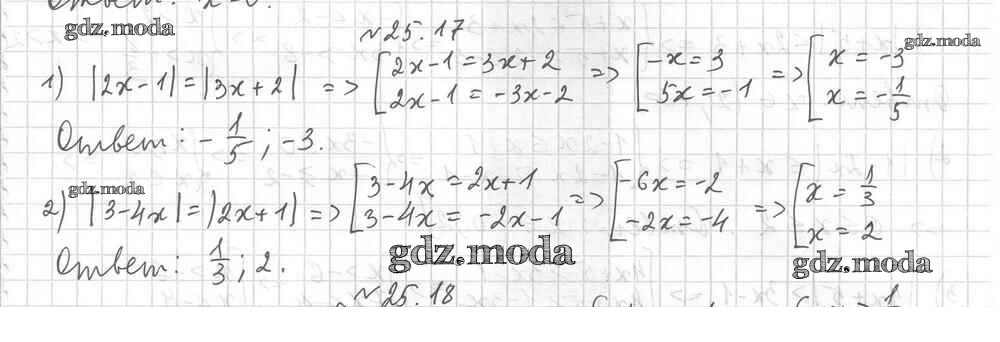 Ответ: x=0.
gdz.moda
№25.17
gdz.moda
1) |2x-1|=|3x+2| => [2x-1=3x+2 2x-1=-3x-2 => [-x=3 5x=-1 => [x=-3 x=-1/5
Ответ: -1/5; -3.
gdz.moda
2) |3-4x|=|2x+1| => [3-4x=2x+1 3-4x=-2x-1 => [-6x=-2 -2x=-4 => [x=1/3 x=2
Ответ: 1/3; 2.
gdz.moda
gdz.moda
№25.18